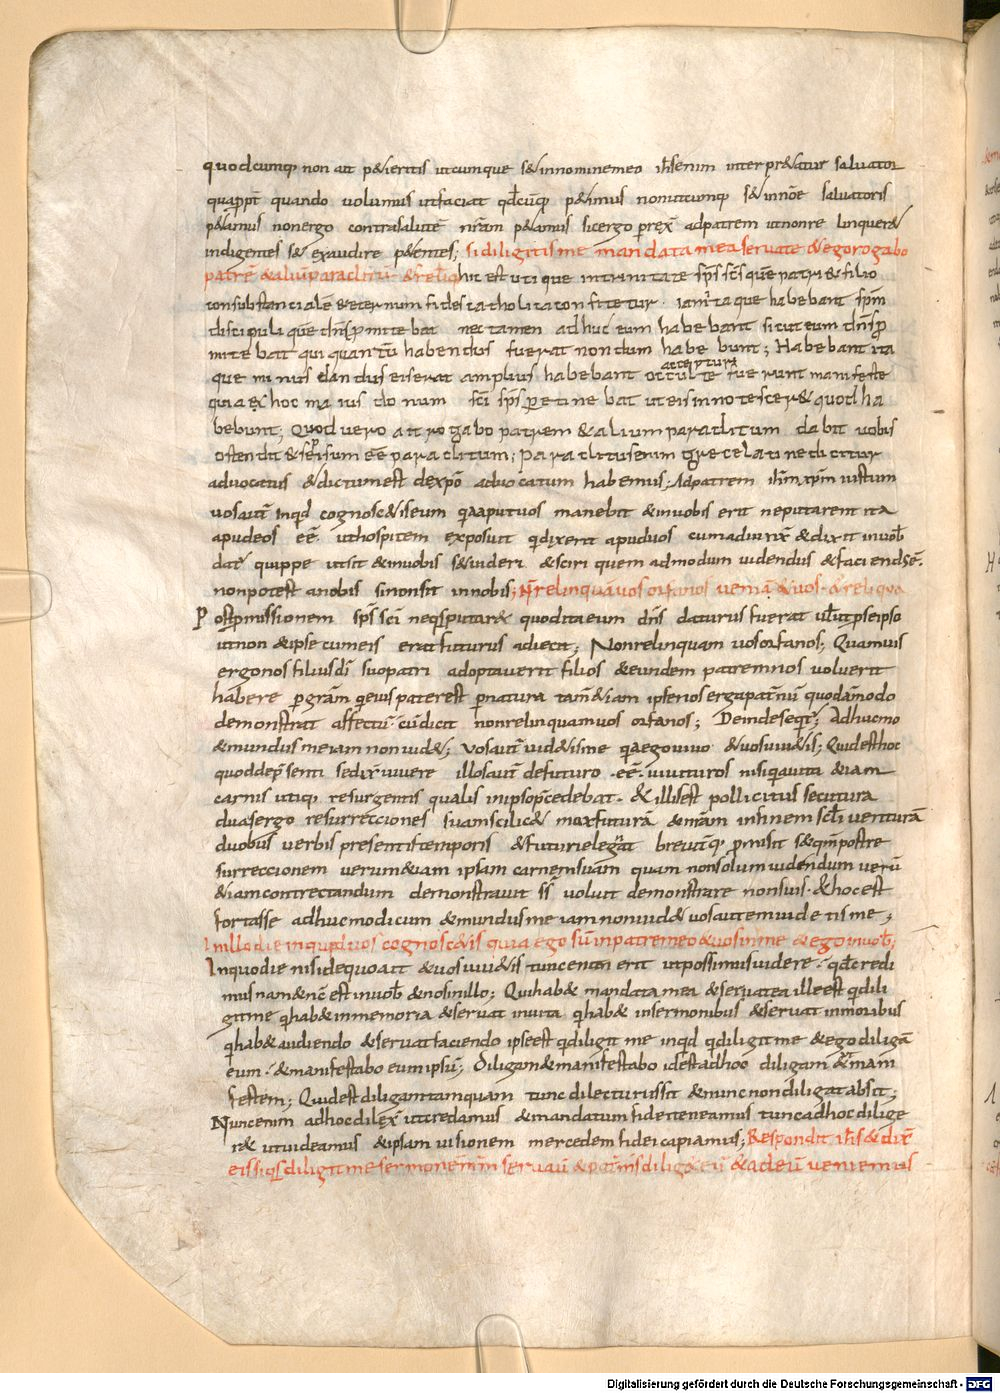 quodcumq; non ait p&ieritis utcumque s& in nomine meo ih̅s enim interpr&atur saluator
qua ppt̅ quando uolumus ut faciat qd̅cu̅q; p&imus non utcumq; s& in no̅e saluatoris
p&amus non ergo contra salute̅ nr̅am p&amus sic ergo p rex̅ ad patrem ut non re linquer&
indigentes s& exaudire p&entes; si diligitis me mandata mea seruate & ego rogabo
patre̅ & aliu̅ paraclitu̅ & reliq hic est uti que in trinitate sp̅s sc̅s que̅ patri & filio
consubstanciale̅ & eternum fides catholica confitetur. iam ita que habebant sp̅m
discipuli que̅ dn̅s p mitte bat nec tamen ad huc eum habebant sicut eum dn̅s p
mitte bat qui quantu̅ habendus fuerat nondum habe bunt; Habebant ita
accepturi
que minus dandus eis erat amplius habebant occulte fuerunt manifeste
quia ex hoc maius donum sc̅i sp̅s p etine bat ut eis innotescer& quod ha
bebunt; Quod uero ait rogabo patrem & alium paraclitum dabit uobis
ostendit & se ipsum ee̅ paraclitum; paraclitus enim grece latine dicitur
aduocatus & dictum est de xpo̅ aduocatum habemus; Ad patrem ih̅m xp̅m iustum
uos aut̅ inqd cognosc&is eum qa aput uos manebit & in uobis erit ne putarent ita
apud eos ee̅ ut hospitem exposuit q dixerit apud uos cum adiunx̅ & dixit in uob̅
dat̅ quippe ut sit & in uobis s& uideri & sciri quem admodum uidendus & faciend se̅.
non potest a nobis si non sit in nobis; N̅ relinqua̅ uos orfanos uenia̅ & uos & reliqua
Post p missionem sp̅s sc̅i neqs putar& quod ita eum dn̅s daturus fuerat uelut p se ipso
ut non & ipse cum eis erat futurus adiecit; Non relinquam uos orfanos; Quamuis
ergo nos filius di̅ suo patri adoptauerit filios & eundem patrem nos uoluerit
habere p gra̅m q eius pater est p natura tam̅ & iam ipse nos erga patnu̅ quodammodo
demonstrat affectu̅ cu̅ dicit non relinquam uos orfanos; Deinde seqt̅; Adhuc mo
& mundus me iam non uid&; uos aut̅ uid&is me qa ego uiuo & uos uiu&is; Quid est hoc
quod de p senti se dix̅ uiuere illos aut̅ de futuro ee̅ uicturos nisi qa uita & iam
carnis utiq; resurgentis qualis in ipso p̅cedebat. & illis est pollicitus secutura
duas ergo resurrecciones suam scilic& mox futura̅ & nr̅am in finem scl̅i uentura̅
duobus uerbis presentis temporis & futuri elegat̅ breuit̅q; p misit s& qm̅ post re
surreccionem uerum & iam ipsam carnem sua̅m quam non solum uidendum ueru̅
& iam contrectandum demonstrauit ss̅ uoluit demonstrare non suis. & hoc est
fortasse adhuc modicum & mundus me iam non uid& uos autem uidetis me;
In illo die inqu̅id uos cognosc&is quia ego su̅ in patre meo & uos in me & ego in uob̅;
In quo die nisi de quo ait & uos uiu&is tunc enim erit ut possimus uidere qd̅ credi
mus nam & nc̅ est in uob̅ & nos in illo; Qui hab& mandata mea & seruat ea ille est q dili
git me q hab& in memoria & seruat in uita q hab& in sermonibus & seruat in moribus
q hab& audiendo & seruat faciendo ipse est q diligit me inqd q diligit me & ego diliga̅
eum. & manifestabo eum ipsu̅; Diligam & manifestabo id est ad hoc diligam & mani
festem; Quid est diligam tamquam tunc dilecturus sit & nunc non diligat absit;
Nunc enim ad hoc dilex̅ ut credamus & mandatum fidei teneamus tunc ad hoc dilige
r& ut uideamus & ipsam uisionem mercedem fidei capiamus; Respondit ih̅s & dix̅
ei si qs diligit me sermone̅ m̅m seruau̅ & pat̅ m̅s dilig& eu̅ & ad eu̅ ueniemus
Digitalisierung gefördert durch die Deutsche Forschungsgemeinschaft - DFG